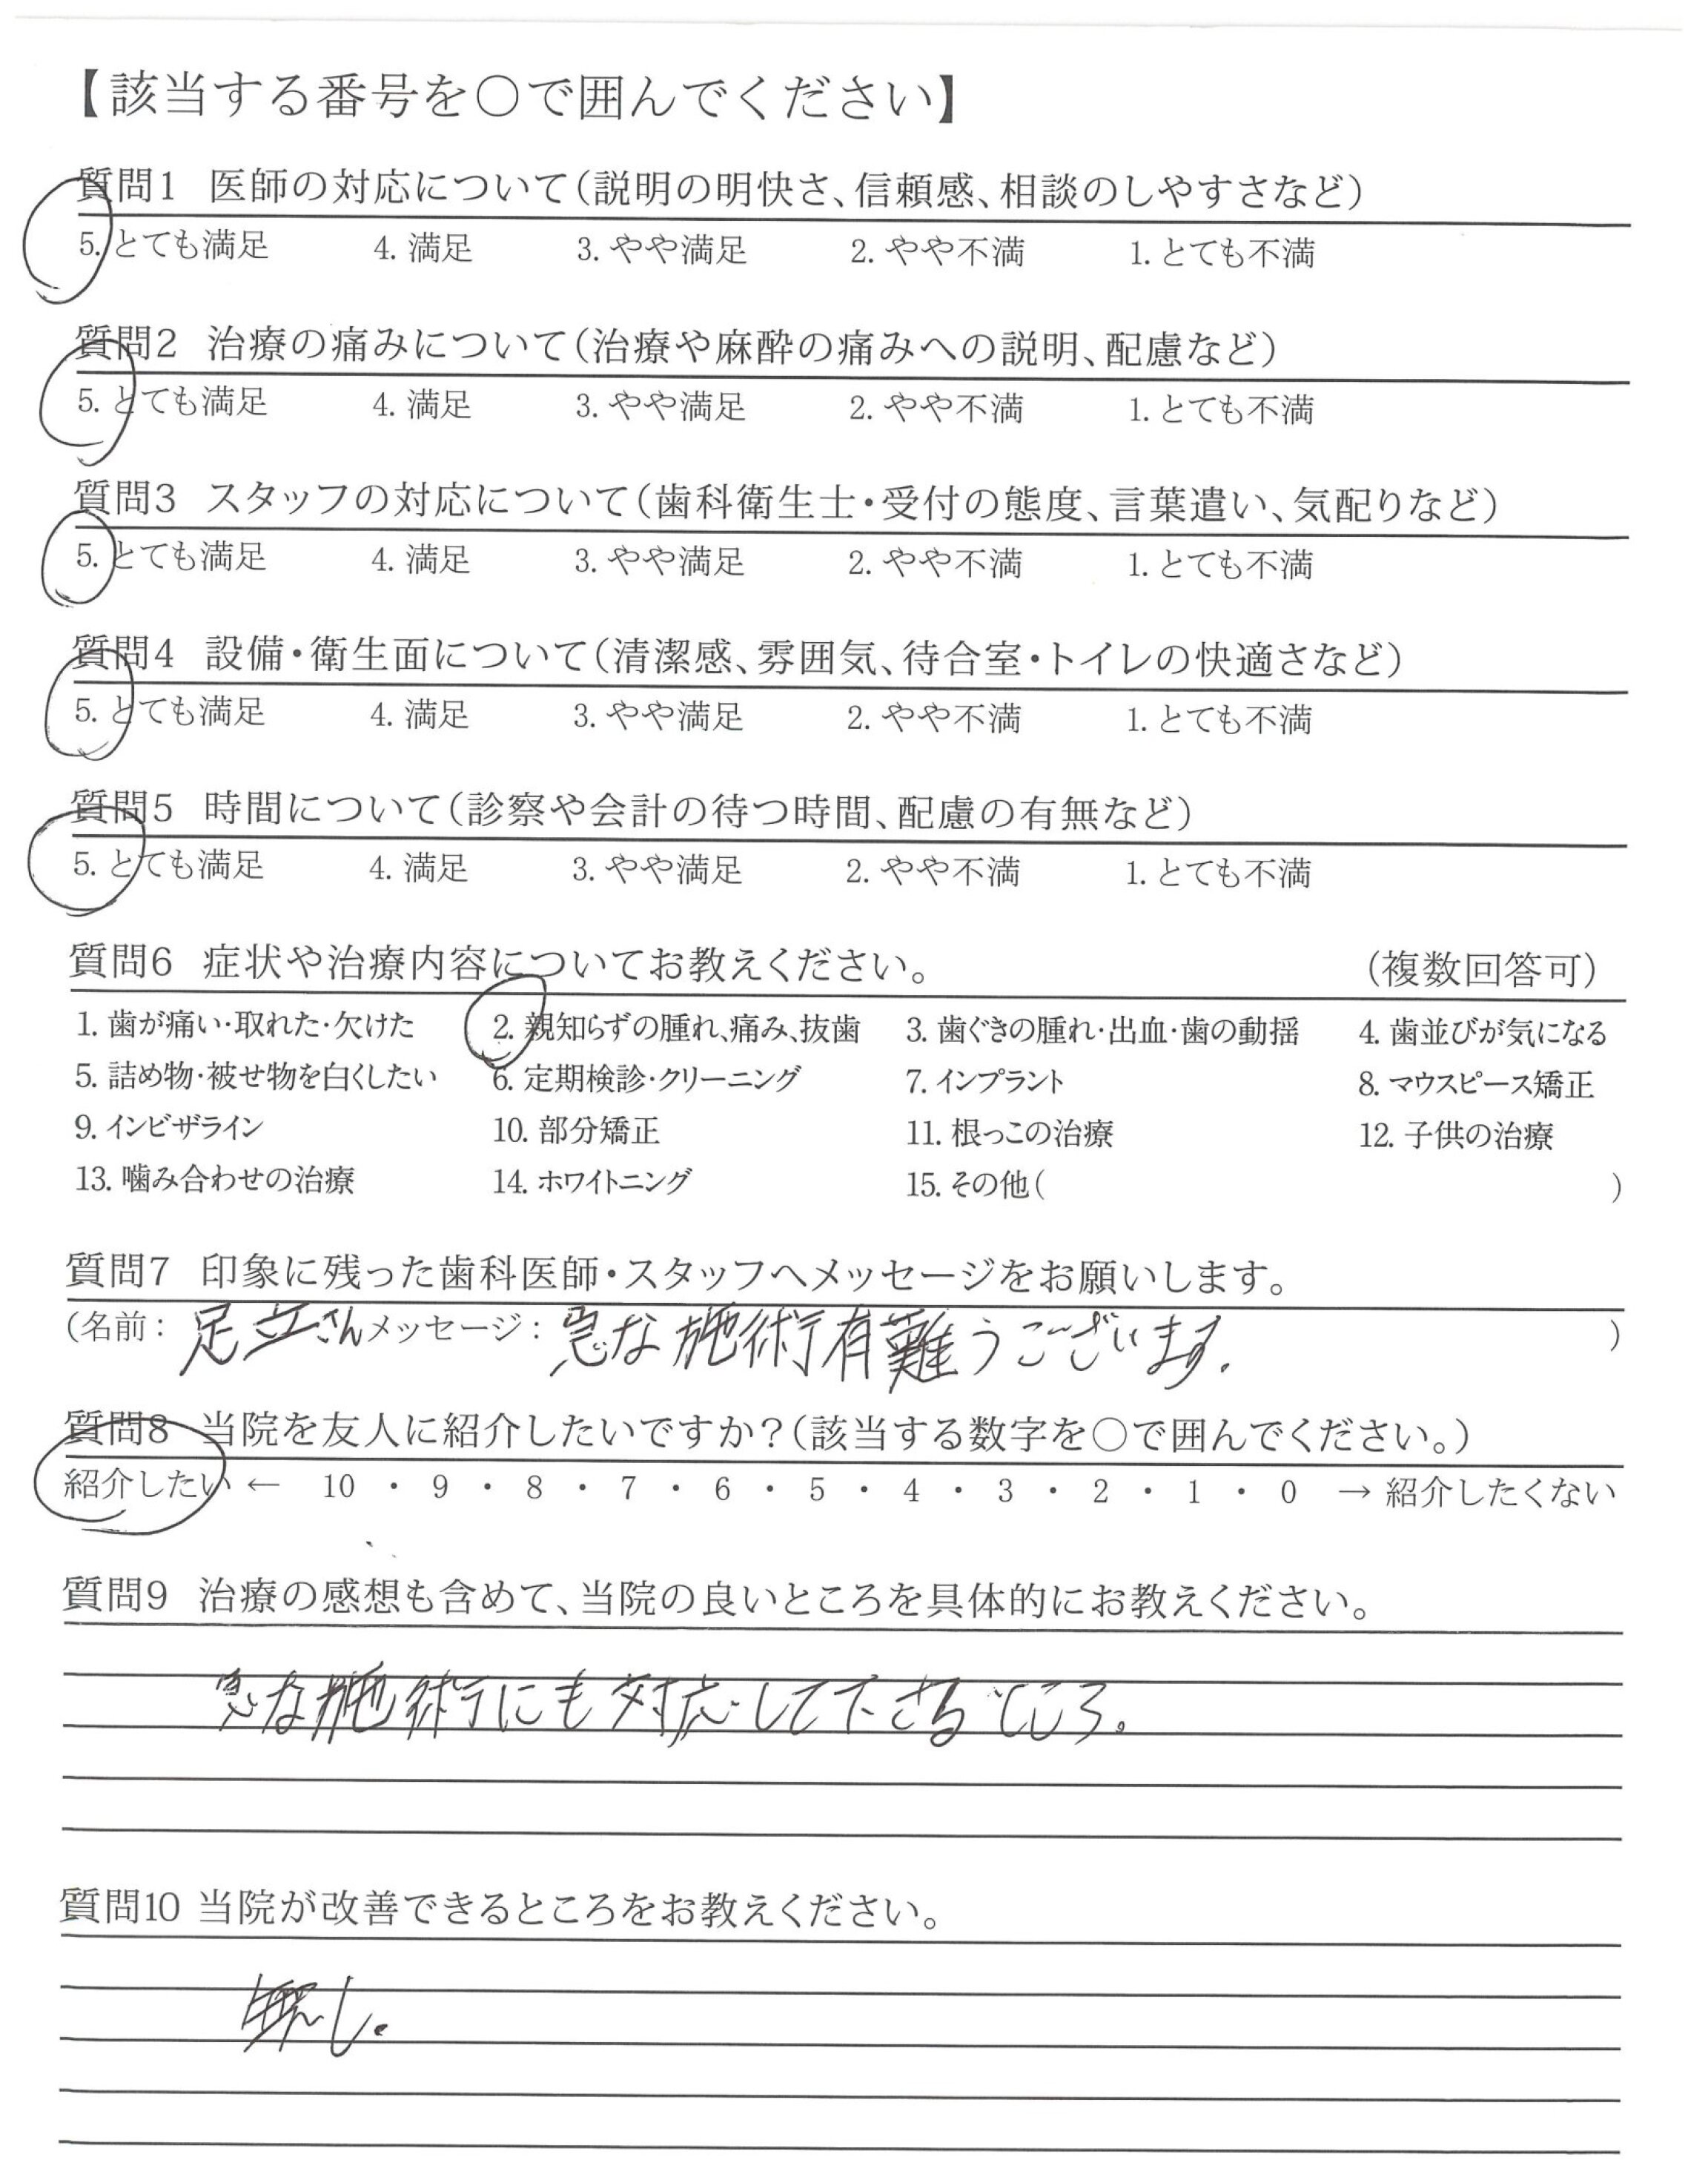 【該当する番号を○で囲んでください】
質問1 医師の対応について(説明の明快さ、信頼感、相談のしやすさなど)
5. とても満足 4. 満足 3. やや満足 2. やや不満 1. とても不満
質問2 治療の痛みについて(治療や麻酔の痛みへの説明、配慮など)
5. とても満足 4. 満足 3. やや満足 2. やや不満 1. とても不満
質問3 スタッフの対応について(歯科衛生士・受付の態度、言葉遣い、気配りなど)
5. とても満足 4. 満足 3. やや満足 2. やや不満 1. とても不満
質問4 設備・衛生面について(清潔感、雰囲気、待合室・トイレの快適さなど)
5. とても満足 4. 満足 3. やや満足 2. やや不満 1. とても不満
質問5 時間について(診察や会計の待つ時間、配慮の有無など)
5. とても満足 4. 満足 3. やや満足 2. やや不満 1. とても不満
質問6 症状や治療内容についてお教えください。 (複数回答可)
1. 歯が痛い・取れた・欠けた 2. 親知らずの腫れ、痛み、抜歯 3. 歯ぐきの腫れ・出血・歯の動揺 4. 歯並びが気になる
5. 詰め物・被せ物を白くしたい 6. 定期検診・クリーニング 7. インプラント 8. マウスピース矯正
9. インビザライン 10. 部分矯正 11. 根っこの治療 12. 子供の治療
13. 噛み合わせの治療 14. ホワイトニング 15. その他( )
質問7 印象に残った歯科医師・スタッフへメッセージをお願いします。
(名前: 足立さん メッセージ: 急な施術有難うございます。 )
質問8 当院を友人に紹介したいですか?(該当する数字を○で囲んでください。)
紹介したい ← 10 ・ 9 ・ 8 ・ 7 ・ 6 ・ 5 ・ 4 ・ 3 ・ 2 ・ 1 ・ 0 → 紹介したくない
質問9 治療の感想も含めて、当院の良いところを具体的にお教えください。
急な施術にも対応して下さるところ。
質問10 当院が改善できるところをお教えください。
無し。